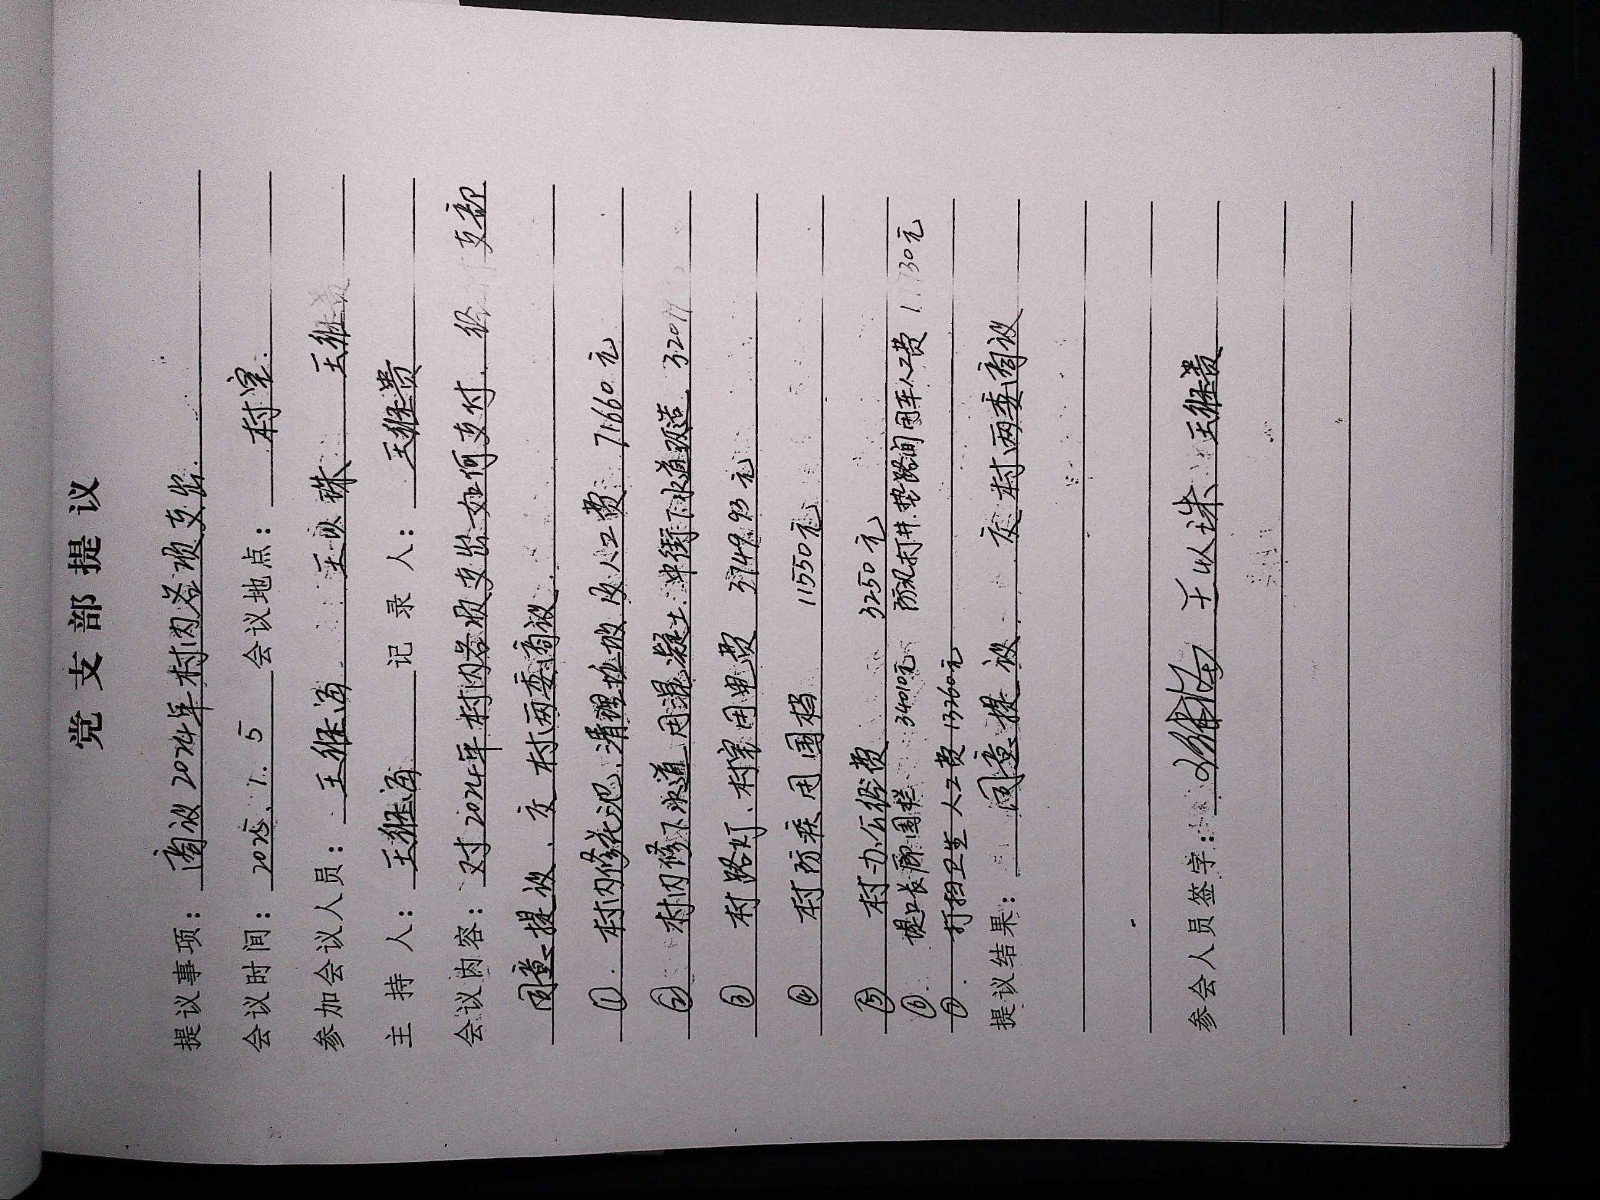 党支部提议
提议事项：商议2024年村内各项支出.
会议时间：2025.1.5 会议地点：村室.
参加会议人员：王继海 王以珠 王继贵
主持人：王继海 记录人：王继贵
会议内容：对2024年村内各项支出如何支付. 经 支部
同意提议、交村两委商议.
① 村内修花池.清理垃圾及人工费 71660元
② 村内修下水道用混凝土.中街下水道改造.
③ 村路灯、村室用电费 3749.93元
④ 村防疾用围档 11550元
⑤ 村办公经费 3250元
⑥ 堤口长廊围栏 34010元 防汛打井.垫路间用车人工费
⑦ 打扫卫生人工费13260元
提议结果：同意提议 交村两委商议
参会人员签字：王继海 王以珠 王继贵